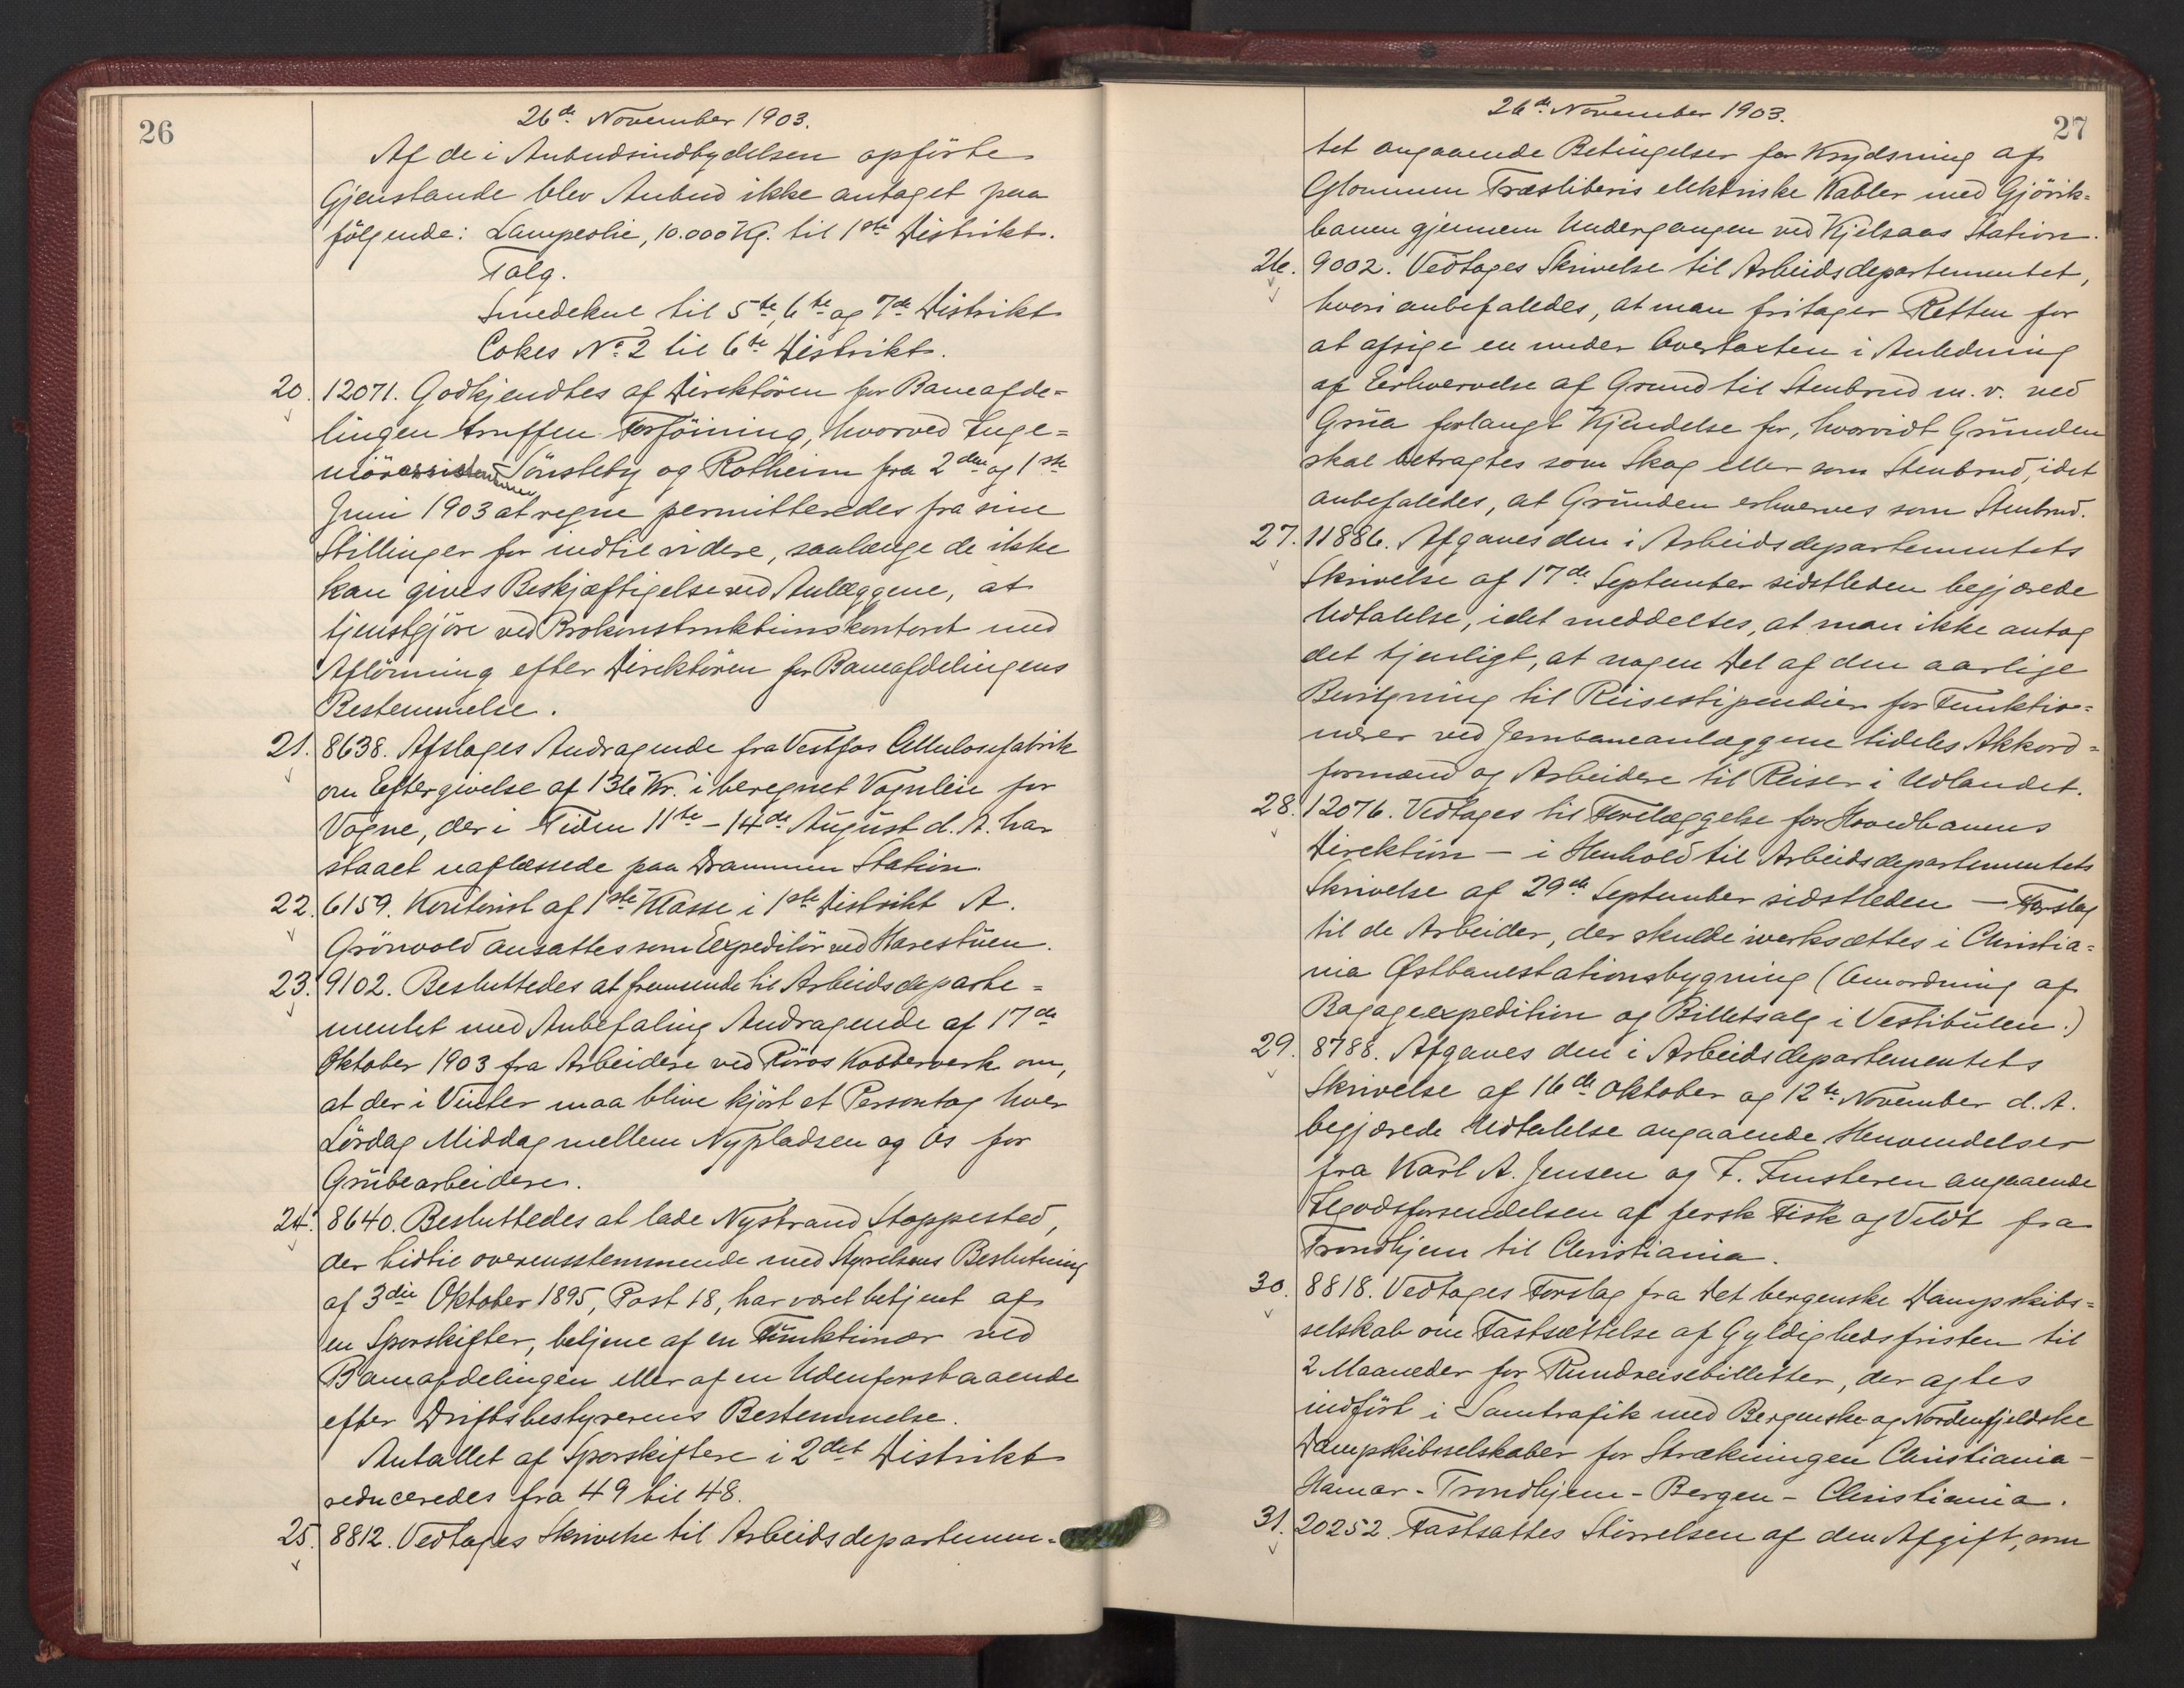 26
26de November 1903.
Af de i Anbudsindbydelsen opførte
Gjenstande blev Anbud ikke antaget paa
følgende: Lampeolie, 10.000 Kg. til 1ste Distrikt.
Talg.
Smedekul til 5te, 6te og 7de Distrikt
Cokes No. 2 til 6te Distrikt.
20. 12071. Godkjendtes af Direktøren for Baneafde=
lingen truffen Forføining, hvorved Inge=
niørassistenterne Sønsteby og Rotheim fra 2den og 1ste
Juni 1903 at regne permitteredes fra sine
Stillinger for indtil videre, saalænge de ikke
kan gives Beskjæftigelse ved Anlæggene, at
tjenstgjøre ved Brokonstruktionskontoret med
Aflønning efter Direktøren for Baneafdelingens
Bestemmelse.
21. 8638. Afsloges Andragende fra Vestfos Cellulosefabrik
om Eftergivelse af 136 Kr. i beregnet Vognleie for
Vogne, der i Tiden 11te - 14de August d. A. har
staaet uaflæssede paa Drammen Station.
22. 6159. Kontorist af 1ste Klasse i 1ste Distrikt A.
Grönvold ansattes som Expeditør ved Harestuen.
23. 9102. Besluttedes at fremsende til Arbeidsdeparte=
mentet med Anbefaling Andragende af 17de
Oktober 1903 fra Arbeidere ved Røros Kobberverk om,
at der i Vinter maa blive kjørt et Persontog hver
Lørdag Middag mellem Nypladsen og Os for
Grubearbeidere.
24. 8640. Besluttedes at lade Nystrand Stoppested,
der hidtil overensstemmende med Styrelsens Beslutning
af 3die Oktober 1895, Post 18, har været betjent af
en Sporskifter, betjene af en Funktionær ved
Baneafdelingen eller af en Udenforstaaende
efter Driftsbestyrerens Bestemmelse.
Antallet af Sporskiftere i 2det Distrikt
reduceredes fra 49 til 48.
25. 8812. Vedtoges Skrivelse til Arbeidsdepartemen=
27
26de November 1903.
tet angaaende Betingelser for Krydsning af
Glommen Træsliberis elektriske Kabler med Gjøvik=
banen gjennem Undergangen ved Kjelsaas Station.
26. 9002. Vedtoges Skrivelse til Arbeidsdepartementet,
hvori anbefaledes, at man fritager Retten for
at afsige en under Overtaxten i Anledning
af Erhvervelse af Grund til Stenbrud m. v. ved
Grua forlangt Kjendelse for, hvorvidt Grunden
skal betragtes som Skog eller som Stenbrud, idet
anbefaledes, at Grunden erhverves som Stenbrud.
27. 11886. Afgaves den i Arbeidsdepartementets
Skrivelse af 17de September sidstleden begjærede
Udtalelse, idet meddeltes, at man ikke antog
det tjenligt, at nogen Del af den aarlige
Bevilgning til Reisestipendier for Funktio=
nærer ved Jernbaneanlæggene tildeles Akkord=
formænd og Arbeidere til Reiser i Udlandet.
28. 12076. Vedtoges til Forelæggelse for Hovedbanens
Direktion - i Henhold til Arbeidsdepartementets
Skrivelse af 29de September sidstleden - Forslag
til de Arbeider, der skulde iverksættes i Christia=
nia Østbanestationsbygning (Omordning af
Bagageexpedition og Billetsalg i Vestibulen.)
29. 8788. Afgaves den i Arbeidsdepartementets
Skrivelse af 16de Oktober og 12te November d. A.
begjærede Udtalelse angaaende Henvendelser
fra Karl A. Jensen og angaaende
Ilgodsforsendelsen af fersk Fisk og Vildt fra
Trondhjem til Christiania.
30. 8818. Vedtoges Forslag fra Det bergenske Dampskibs=
selskab om Fastsættelse af Gyldighedsfristen til
2 Maaneder for Rundreisebilletter, der agtes
indført i Samtrafik med Bergenske og Nordenfjeldske
Dampskibsselskaber for Strækningen Christiania -
Hamar - Trondhjem - Bergen - Christiania.
31. 20252. Fastsattes Størrelsen af den Afgift, som